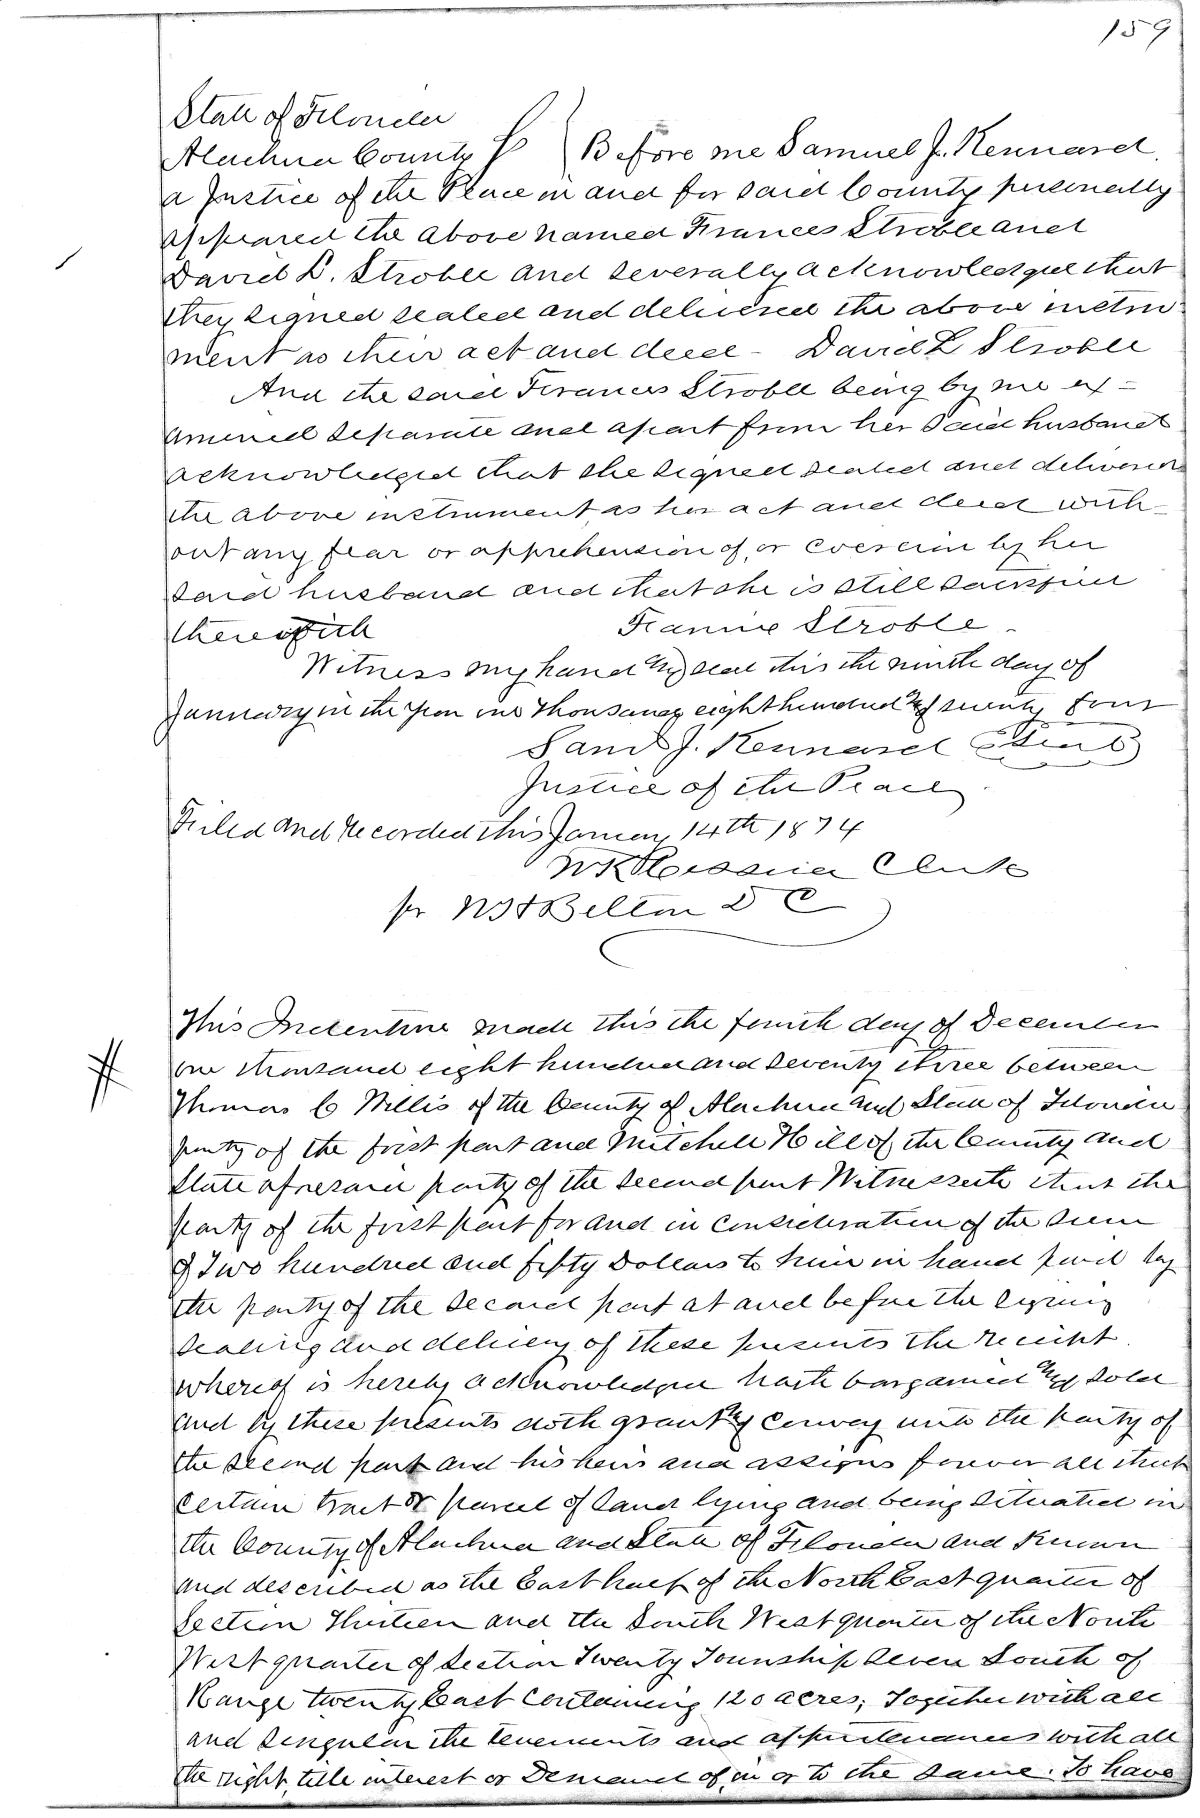 159
State of Florida
Alachua County } Before me Samuel J. Kennard
a Justice of the Peace in and for said County personally
appeared the above named Frances Stroble and
David L. Stroble and severally acknowledged that
they signed sealed and delivered the above instru-
ment as their act and deed - David L Stroble
And the said Frances Stroble being by me ex-
amined separate and apart from her said husband
acknowledged that she signed sealed and delivered
the above instrument, as her act and deed with-
out any fear or apprehension of, or coercion by her
said husband and that she is still satisfied
therewith Fannie Stroble -
Witness my hand and seal this the ninth day of
January in the year one thousand eight hundred and seventy four
Saml J. Kennard (Seal)
Justice of the Peace
Filed and recorded this January 14th 1874
Clerk
for Belton D C
This Indenture made this the fourth day of December
one thousand eight hundred and seventy three between
Thomas C Willis of the County of Alachua and State of Florida
party of the first part and Mitchell Hill of the County and
State aforesaid party of the second part Witnesseth that the
party of the first part for and in consideration of the sum
of Two hundred and fifty Dollars to him in hand paid by
the party of the second part at and before the signing
sealing and delivery of these presents the receipt
whereof is hereby acknowledged hath bargained and sold
and by these presents doth grant and convey unto the party of
the second part and his heirs and assigns forever all that
certain tract or parcel of land lying and being situated in
the County of Alachua and State of Florida and known
and described as the East half of the North East quarter of
Section Thirteen and the South West quarter of the North
West quarter of Section Twenty Township Seven South of
Range twenty East containing 120 acres; Together with all
and singular the tenements and appurtenances with all
the right, title interest or Demand of, in or to the same. To have